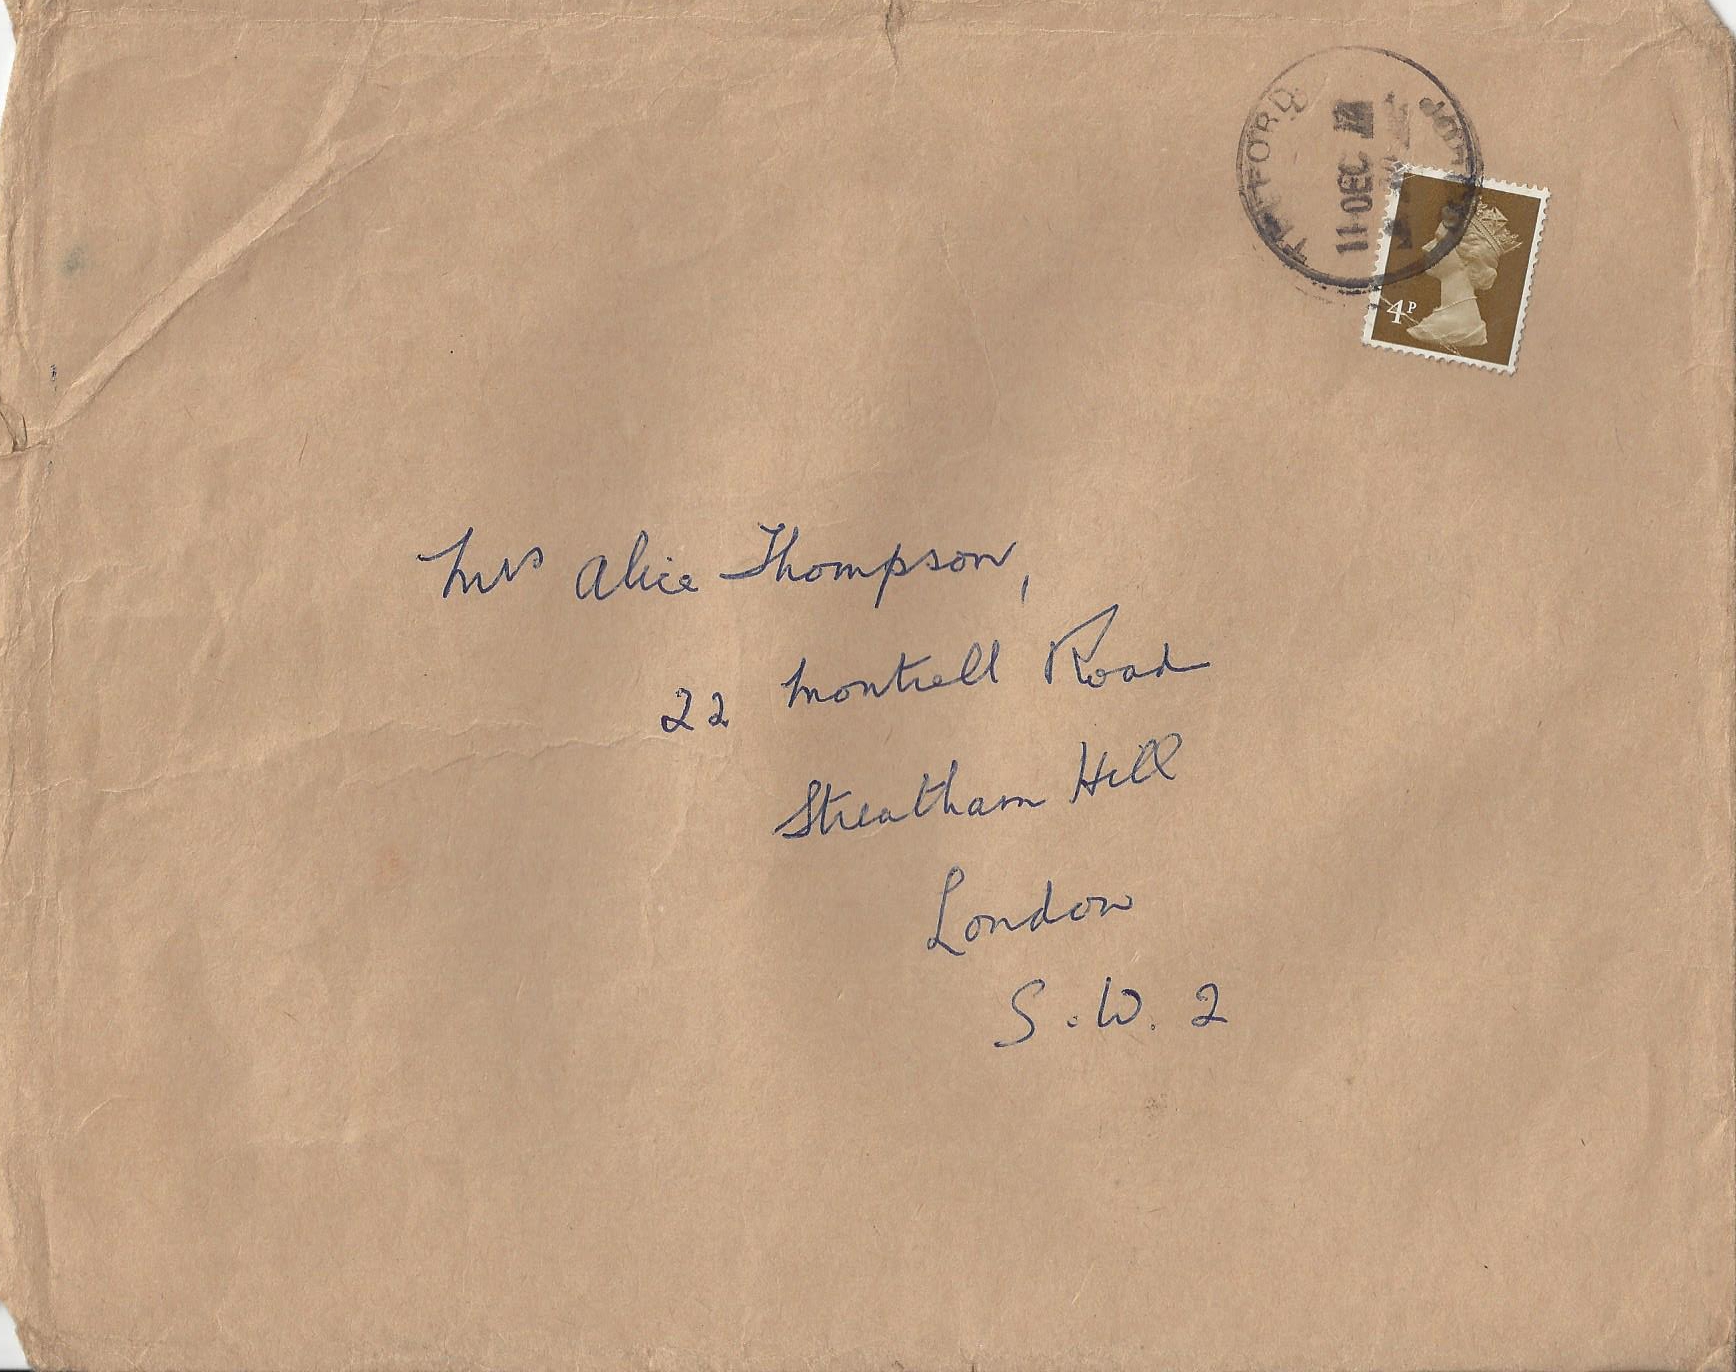 11 DEC
4P
Mrs Alice Thompson,
22 Montrell Road
Streatham Hill
London
S.W. 2